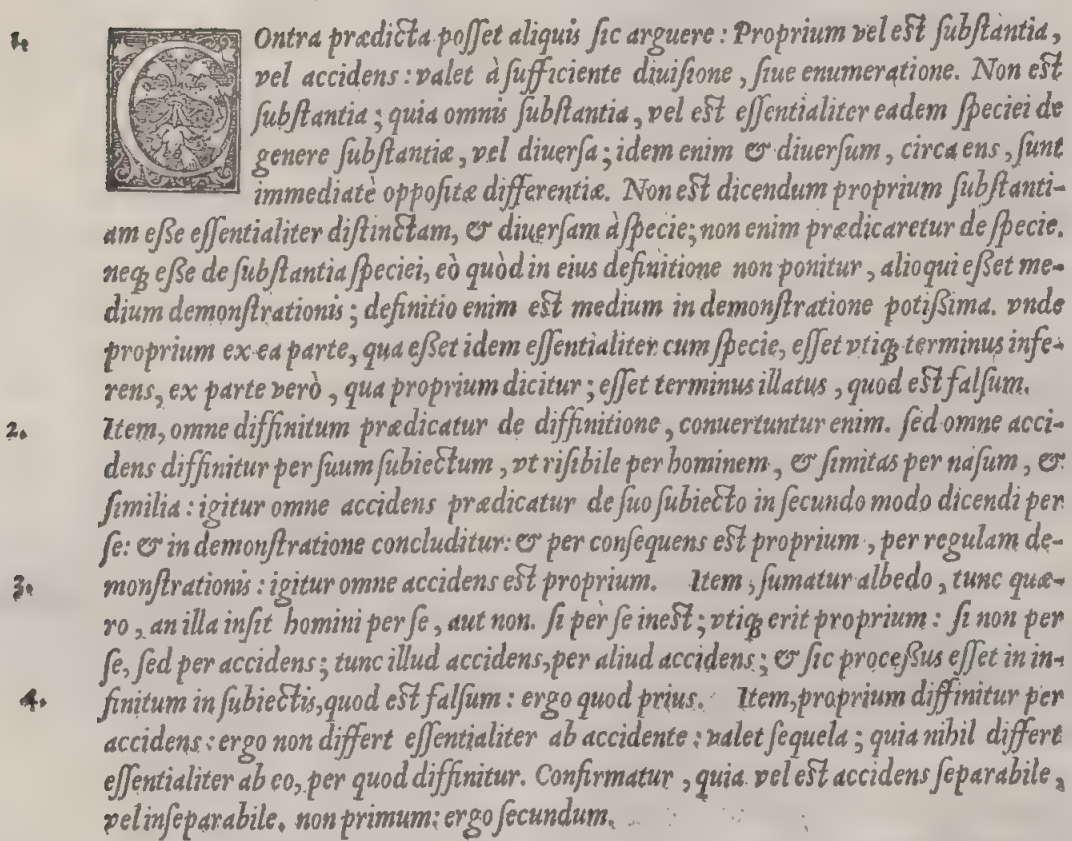 1. COntra prædicta posset aliquis sic arguere : Proprium vel est substantia,
vel accidens : valet à sufficiente diuisione, siue enumeratione. Non est
substantia ; quia omnis substantia, vel est essentialiter eadem speciei de
genere substantiæ, vel diuersa ; idem enim & diuersum, circa ens, sunt
immediatè oppositæ differentiæ. Non est dicendum proprium substanti-
am esse essentialiter distinctam, & diuersam à specie; non enim prædicaretur de specie.
neq; esse de substantia speciei, eò quòd in eius definitione non ponitur, alioqui esset me-
dium demonstrationis ; definitio enim est medium in demonstratione potissima. vnde
proprium ex ea parte, qua esset idem essentialiter cum specie, esset vtiq; terminus infe-
rens, ex parte verò, qua proprium dicitur ; esset terminus illatus, quod est falsum.
2. Item, omne diffinitum prædicatur de diffinitione, conuertuntur enim. sed omne acci-
dens diffinitur per suum subiectum, vt risibile per hominem, & simitas per nasum, &
similia : igitur omne accidens prædicatur de suo subiecto in secundo modo dicendi per
se: & in demonstratione concluditur: & per consequens est proprium, per regulam de-
3. monstrationis : igitur omne accidens est proprium. Item, sumatur albedo, tunc quæ-
ro, an illa insit homini per se, aut non. si pèr se inest ; vtiq; erit proprium : si non per
se, sed per accidens ; tunc illud accidens, per aliud accidens ; & sic processus esset in in-
4. finitum in subiectis, quod est falsum : ergo quod prius. Item, proprium diffinitur per
accidens : ergo non differt essentialiter ab accidente : valet sequela ; quia nihil differt
essentialiter ab eo, per quod diffinitur. Confirmatur, quia vel est accidens separabile,
vel inseparabile. non primum: ergo secundum.